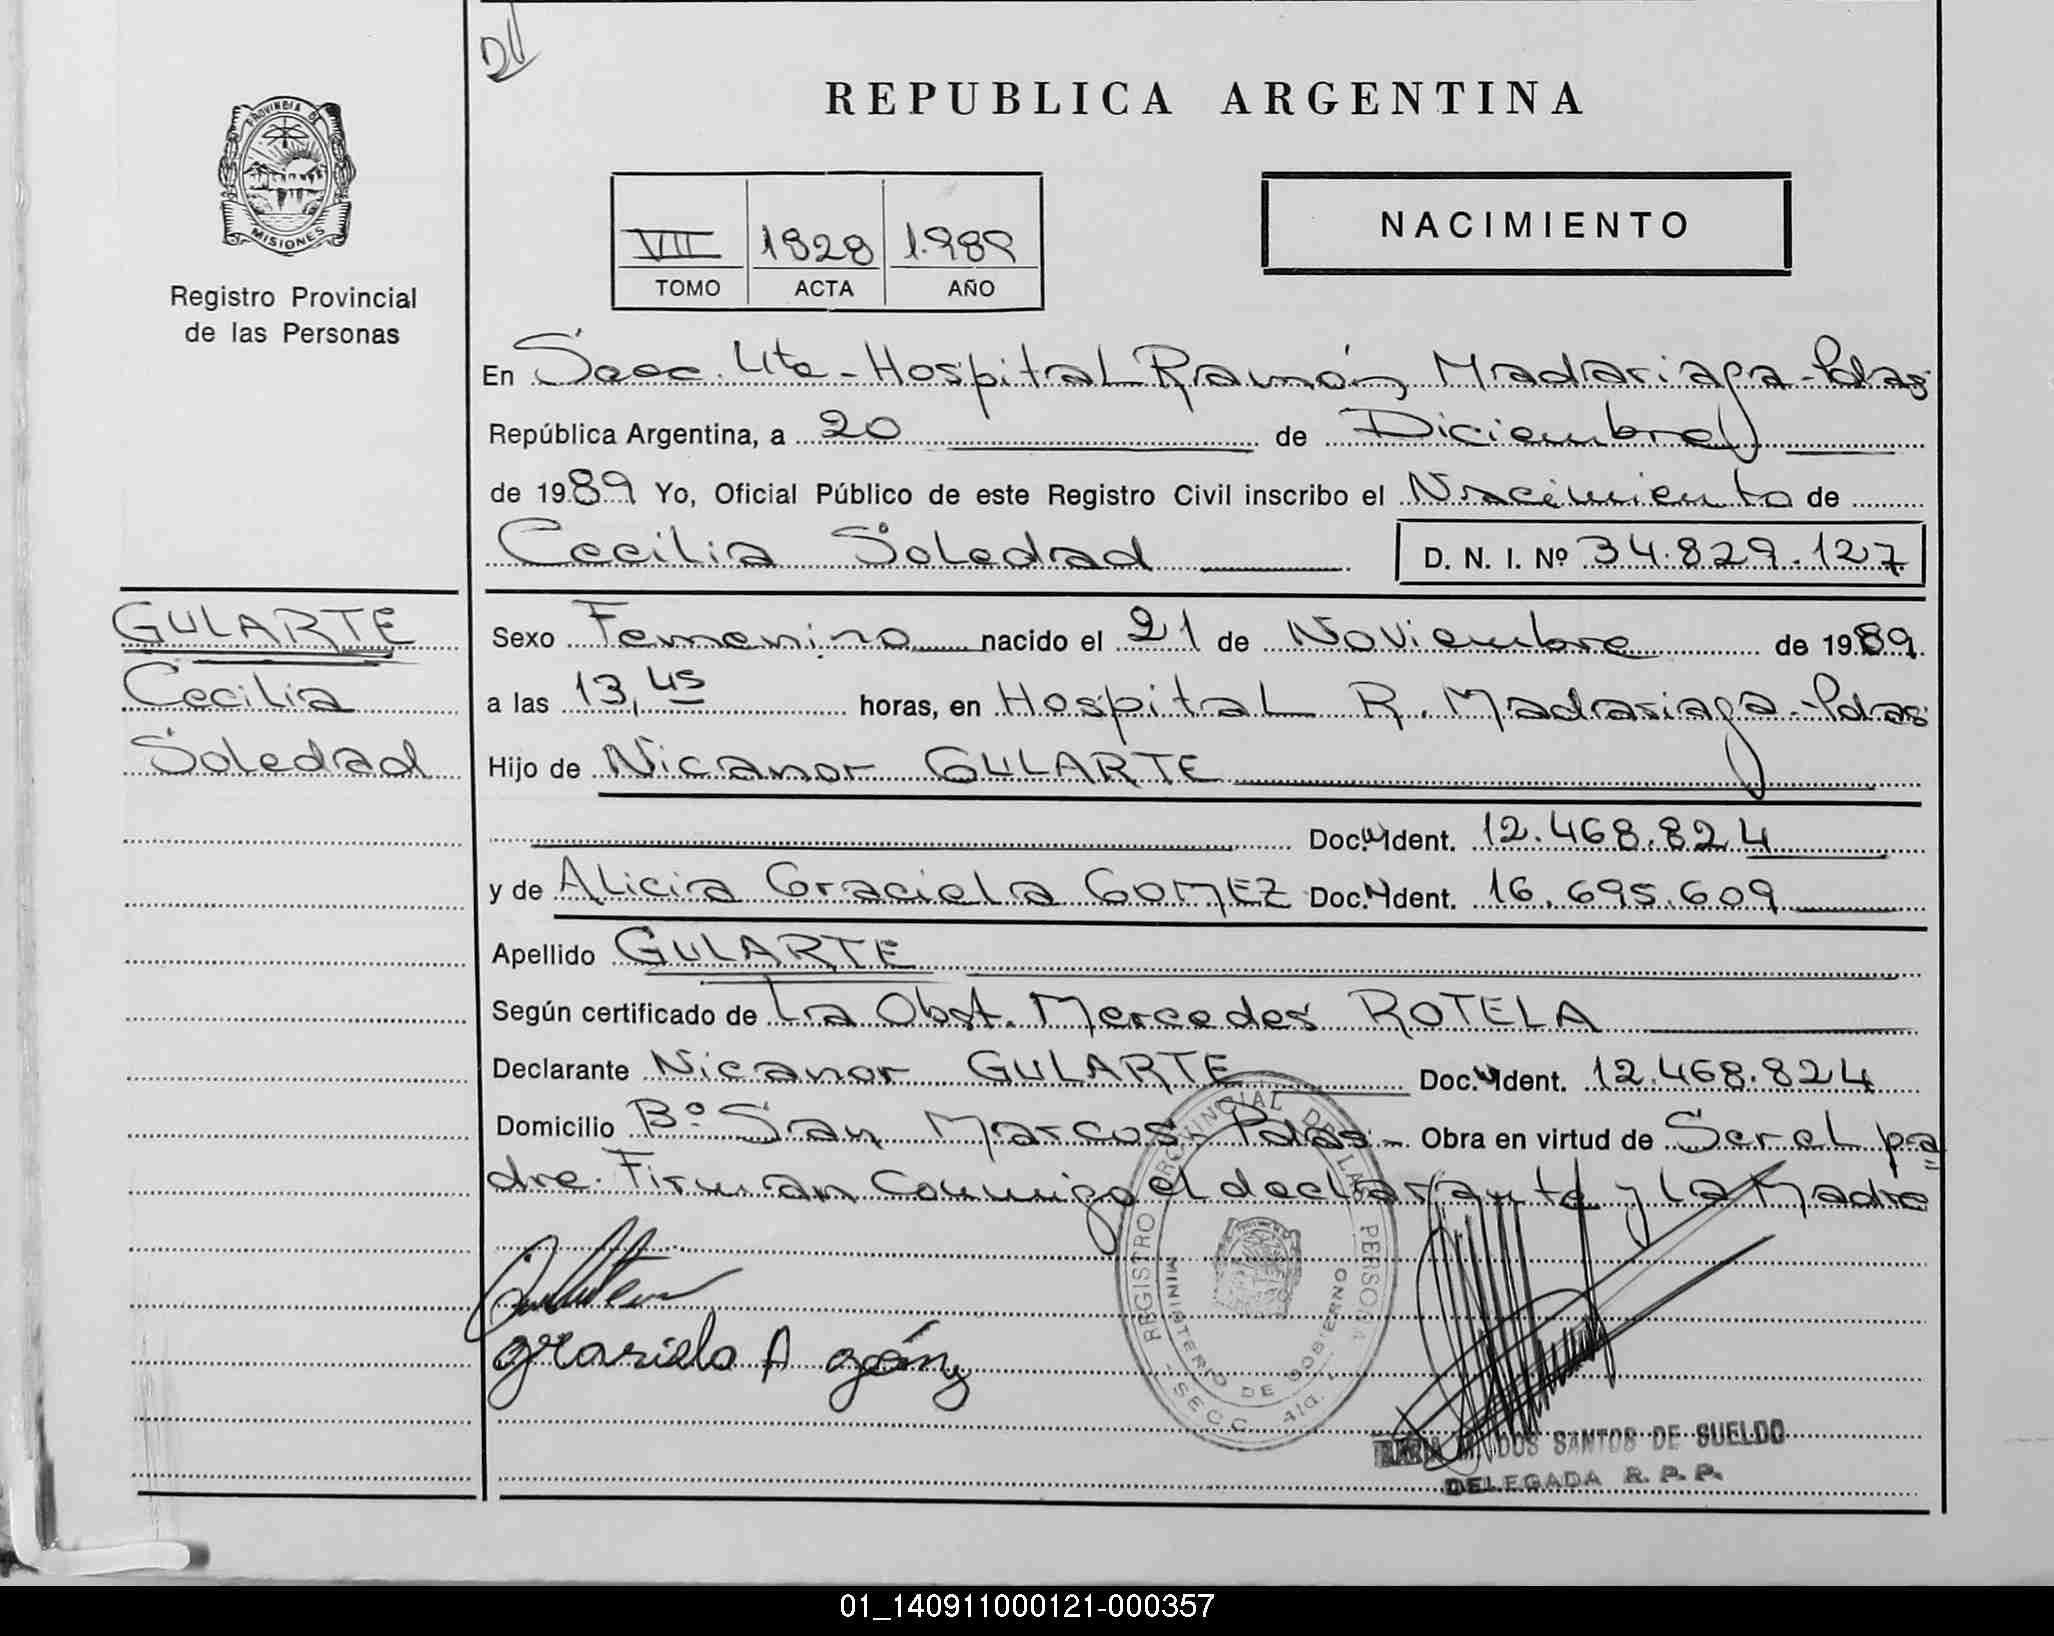 REPUBLICA ARGENTINA
PROVINCIA DE
MISIONES
Registro Provincial
de las Personas
VII 1828 1.989
TOMO ACTA AÑO
NACIMIENTO
En Secc. 4ta - Hospital Ramón Madariaga - Pdas
República Argentina, a 20 de Diciembre
de 1989 Yo, Oficial Público de este Registro Civil inscribo el Nacimiento de
Cecilia Soledad D. N. I. Nº 34.829.127
GULARTE
Cecilia
Soledad
Sexo Femenino nacido el 21 de Noviembre de 1989
a las 13,45 horas, en Hospital R. Madariaga - Pdas
Hijo de Nicanor GULARTE
Doc. Ident. 12.468.824
y de Alicia Graciela GOMEZ Doc. Ident. 16.695.609
Apellido GULARTE
Según certificado de La Obst. Mercedes ROTELA
Declarante Nicanor GULARTE Doc. Ident. 12.468.824
Domicilio Bº San Marcos - Pdas - Obra en virtud de Ser el pa
dre. Firman conmigo el declarante y la Madre
REGISTRO PROVINCIAL DE LAS PERSONAS
MINISTERIO DE GOBIERNO
SECC. 4ta.
graciela A gómez
DOS SANTOS DE SUELDO
DELEGADA R. P. P.
01_140911000121-000357